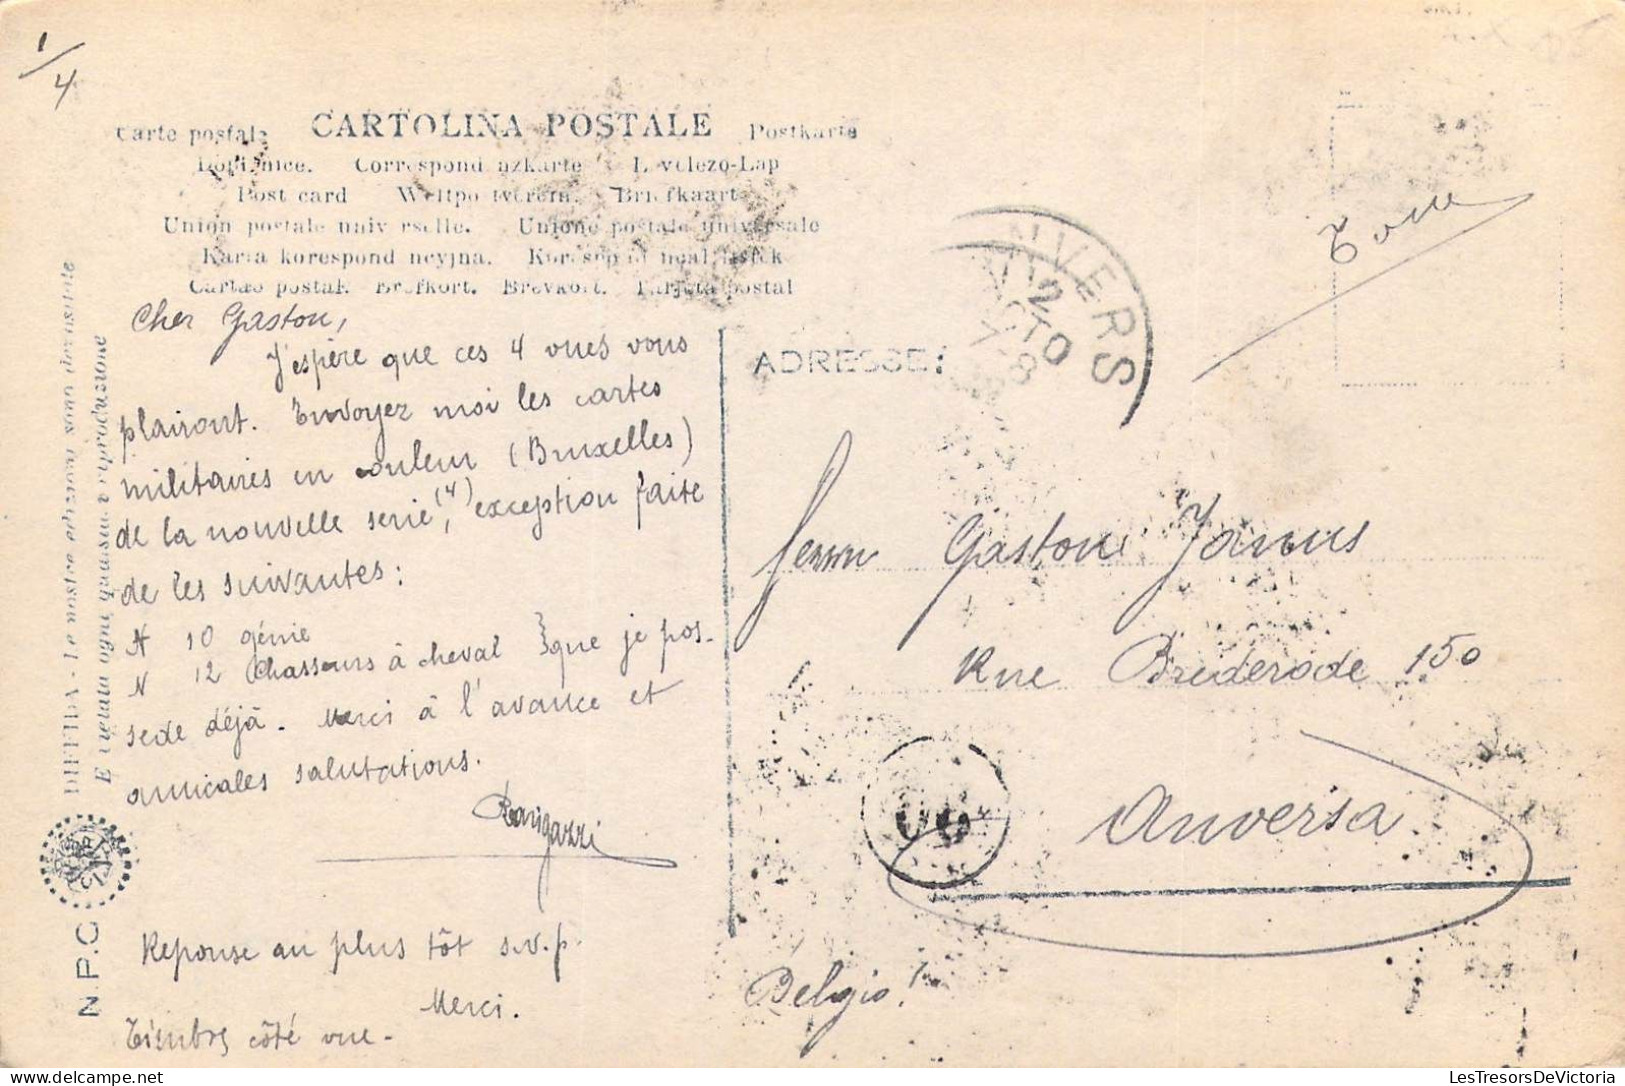 1/4
Carte postale CARTOLINA POSTALE Postkarte
Dopisnice. Correspondenzkarte Levelezo-Lap
Post card Weltpostverein. Briefkaart
Union postale universelle. Unione postale universale
Karta korespondencyjna. Korespondencial
Cartao postal. Brefkort. Brevkort. Tarjeta postal
ADRESSE:
NVERS
12
OCTO
7-8
T vue
Cher Gaston,
J'espère que ces 4 vues vous
plairont. Envoyez moi les cartes
militaires en couleur (Bruxelles)
de la nouvelle serie (4), exception faite
de les suivantes:
N 10 génie
N 12 Chasseurs à cheval } que je pos-
sede déjà. Merci à l'avance et
amicales salutations.
Reponse au plus tôt s.v.p.
Merci.
Timbre côté vue.
Gaston Janus
Rue Brederode 150
Anversa
Belgio!
DIFFIDA - Le nostre edizioni sono depositate
E vietata ogni qualsiasi riproduzione
N.P.G
LesTresorsDeVictoria